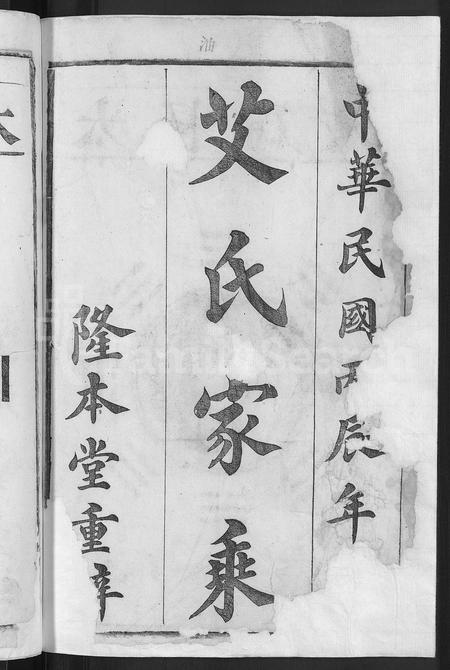 中華民國丙辰年
艾氏家乘
隆本堂重梓
油
FamilySearch